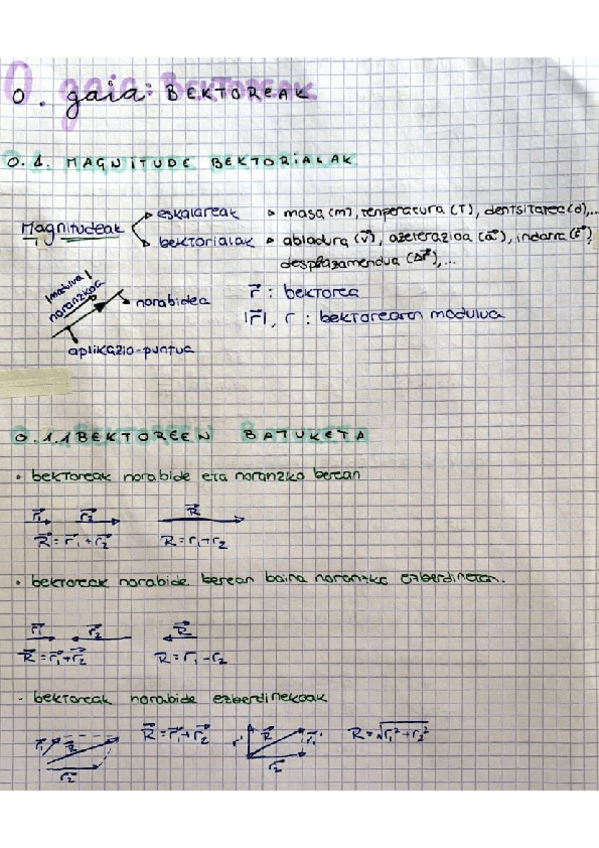 0. gaia: BEKTOREAK
0.1. MAGNITUDE BEKTORIALAK
Magnitudeak
eskalareak → masa (m), tenperatura (T), dentsitatea (d),...
bektorialak → abiadura (v⃗), azelerazioa (a⃗), indarra (F⃗),
desplazamendua (Δr⃗),...
|modulua|
noranzkoa
norabidea
aplikazio-puntua
r⃗ : bektorea
|r⃗|, r : bektorearen modulua
0.1.1 BEKTOREEN BATUKETA
• bektoreak norabide eta noranzko berean
r₁⃗ r₂⃗ R⃗
R⃗ = r₁⃗ + r₂⃗ R = r₁ + r₂
• bektoreak norabide berean baina noranzko ezberdinetan.
r₁⃗ r₂⃗ R⃗
R⃗ = r₁⃗ + r₂⃗ R = r₁ - r₂
- bektoreak norabide ezberdinekoak
r₁⃗ R⃗ r₂⃗ R⃗ = r₁⃗ + r₂⃗ R⃗ r₂⃗ R = √r₁² + r₂²